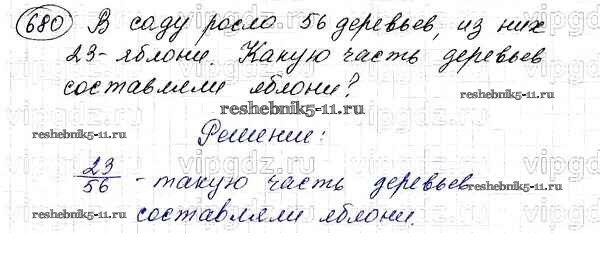 680 В саду росло 56 деревьев, из них
23 - яблони. Какую часть деревьев
составляли яблони?
reshebnik5-11.ru
reshebnik5-11.ru
Решение:
reshebnik5-11.ru
vipgdz.ru
23/56 - такую часть деревьев
составляли яблони.
reshebnik5-11.ru
reshebnik5-11.ru